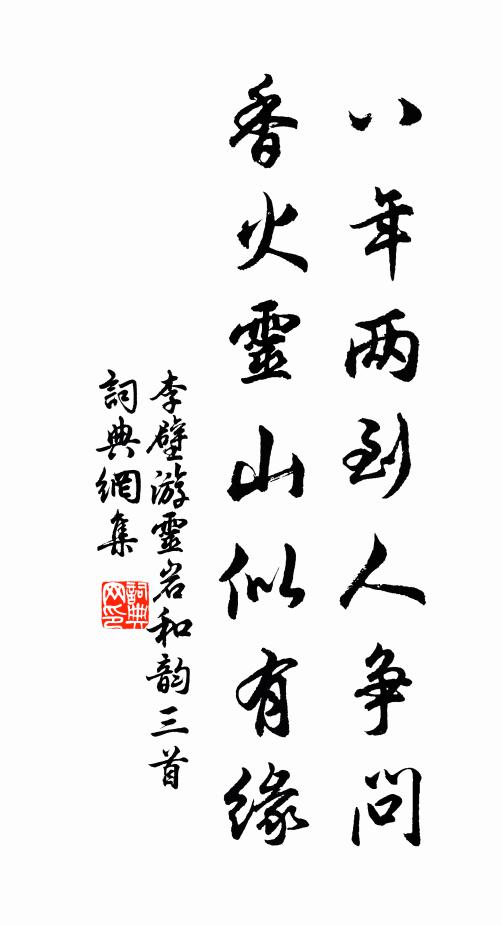 八年两到人争問
香火靈山似有緣
李壁游靈岩和韵三首
詞典網集
詞典网印